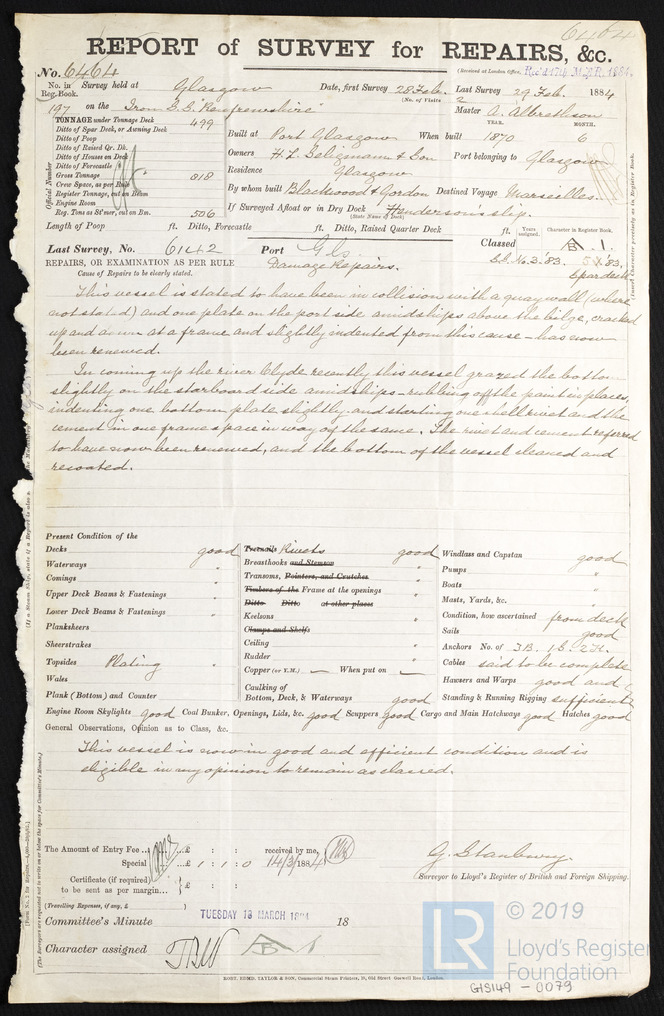 6464
REPORT of SURVEY for REPAIRS, &c.
No. 6464
(Received at London Office, Rec'd 17th MAR. 1884.
No. in Reg. Book. Survey held at Glasgow Date, first Survey 28 Feb. Last Survey 29 Feb. 1884
(No. of Visits 2
197 on the Iron S.S. "Renfrewshire" Master A. Albrethson
TONNAGE under Tonnage Deck 499
Ditto of Spar Deck, or Awning Deck
Ditto of Poop
Ditto of Raised Qr. Dk.
Ditto of Houses on Deck
Ditto of Forecastle
Gross Tonnage 818
Crew Space, as per Rule
Register Tonnage, cut on Beam
Engine Room
Reg. Tons as St'mer, cut on Bm. 506
Official Number
YEAR. MONTH.
Built at Port Glasgow When built 1870 6
Owners H. L. Seligmann & Son Port belonging to Glasgow
Residence Glasgow
By whom built Blackwood & Gordon Destined Voyage Marseilles.
If Surveyed Afloat or in Dry Dock Henderson's slip.
(State Name of Dock)
Length of Poop ft. Ditto, Forecastle ft. Ditto, Raised Quarter Deck ft.
Years assigned. Character in Register Book.
Last Survey, No. 6142 Port Gls. Classed A. 1.
S.S. No. 3. '83. 5 '83.
Spar deck
(Insert Character precisely as in Register Book.
REPAIRS, OR EXAMINATION AS PER RULE Damage Repairs.
Cause of Repairs to be clearly stated.
This vessel is stated to have been in collision with a quay wall (where
not stated) and one plate on the port side amidships above the bilge, cracked
up and down at a frame and slightly indented from this cause – has now
been renewed.
In coming up the river Clyde recently this vessel grazed the bottom
slightly on the starboard side amidships – rubbing off the paint in places,
indenting one bottom plate slightly and starting one shell rivet and the
cement in one frame space in way of the same. The rivet and cement referred
to have now been renewed, and the bottom of the vessel cleaned and
recoated.
Present Condition of the
Decks good
Waterways "
Comings "
Upper Deck Beams & Fastenings "
Lower Deck Beams & Fastenings "
Planksheers
Sheerstrakes
Topsides Plating "
Wales
Plank (Bottom) and Counter
Treenails Rivets good
Breasthooks and Stemson "
Transoms, Pointers, and Crutches "
Timbers of the Frame at the openings "
Ditto Ditto at other places
Keelsons "
Clamps and Shelfs
Ceiling "
Rudder "
Copper (or Y.M.) — When put on —
Caulking of Bottom, Deck, & Waterways good
Windlass and Capstan good
Pumps "
Boats "
Masts, Yards, &c. "
Condition, how ascertained from deck
Sails good
Anchors No. of 3B. 1S. 2K.
Cables said to be complete
Hawsers and Warps good and
Standing & Running Rigging sufficient
Engine Room Skylights good Coal Bunker, Openings, Lids, &c. good Scuppers good Cargo and Main Hatchways good Hatches good
General Observations, Opinion as to Class, &c.
This vessel is now in good and efficient condition and is
eligible in my opinion to remain as classed.
The Amount of Entry Fee .. £ : : received by me,
Special .. £ 1 : 1 : 0 14/3/1884
Certificate (if required) to be sent as per margin... £ : :
(Travelling Expenses, if any, £ )
G. Stanbury.
Surveyor to Lloyd's Register of British and Foreign Shipping.
Committee's Minute TUESDAY 18 MARCH 1884 18
Character assigned
ROBT. EDMD. TAYLOR & SON, Commercial Steam Printers, 19, Old Street Goswell Road, London.
LR
© 2019
Lloyd's Register
Foundation
GLS149 – 0079